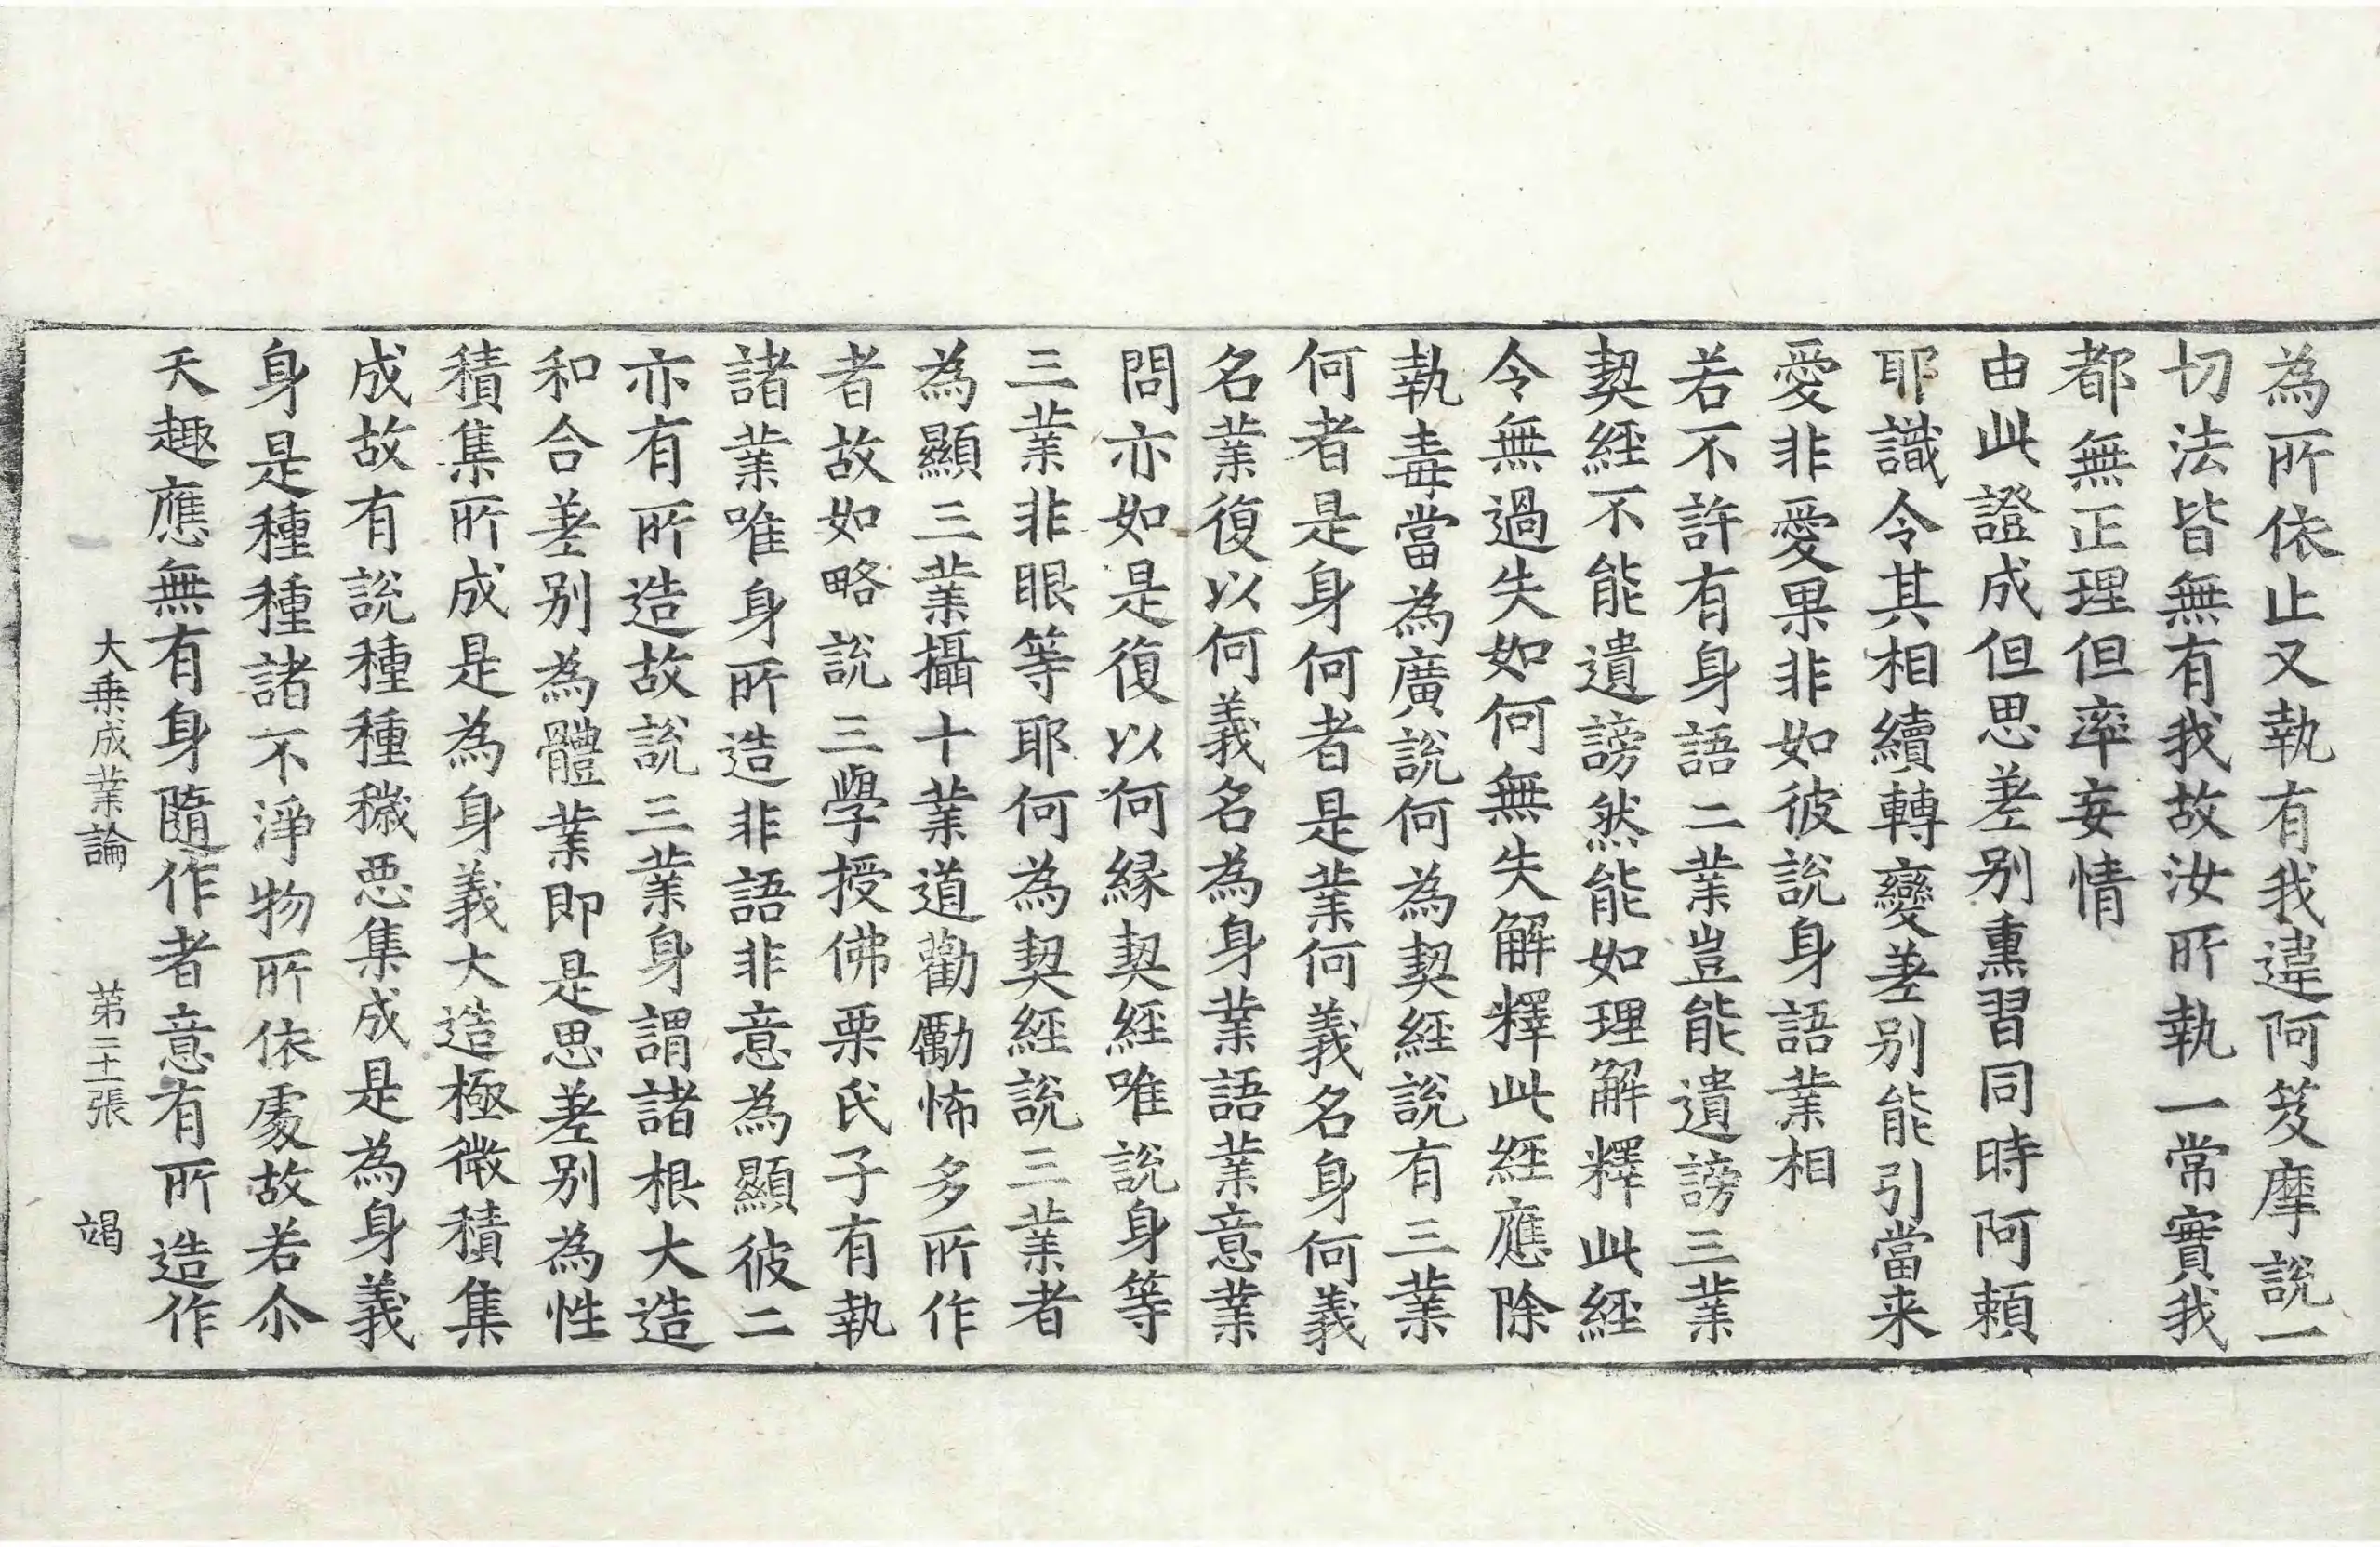 為所依止又執有我違阿笈摩說一
切法皆無有我故汝所執一常實我
都無正理但率妄情
由此證成但思差别熏習同時阿頼
耶識令其相續轉變差别能引當来
愛非愛果非如彼說身語業相
若不許有身語二業豈能遺謗三業
契經不能遺謗然能如理解釋此經
令無過失如何無失解釋此經應除
執毒當為廣說何為契經說有三業
何者是身何者是業何義名身何義
名業復以何義名為身業語業意業
問亦如是復以何縁契經唯說身等
三業非眼等耶何為契經說三業者
為顯三業攝十業道勸勵怖多所作
者故如略說三學授佛栗氏子有執
諸業唯身所造非語非意為顯彼二
亦有所造故說三業身謂諸根大造
和合差别為體業即是思差别為性
積集所成是為身義大造極微積集
成故有說種種穢惡集成是為身義
身是種種諸不淨物所依處故若尒
天趣應無有身隨作者意有所造作
大乗成業論 第二十一張 竭